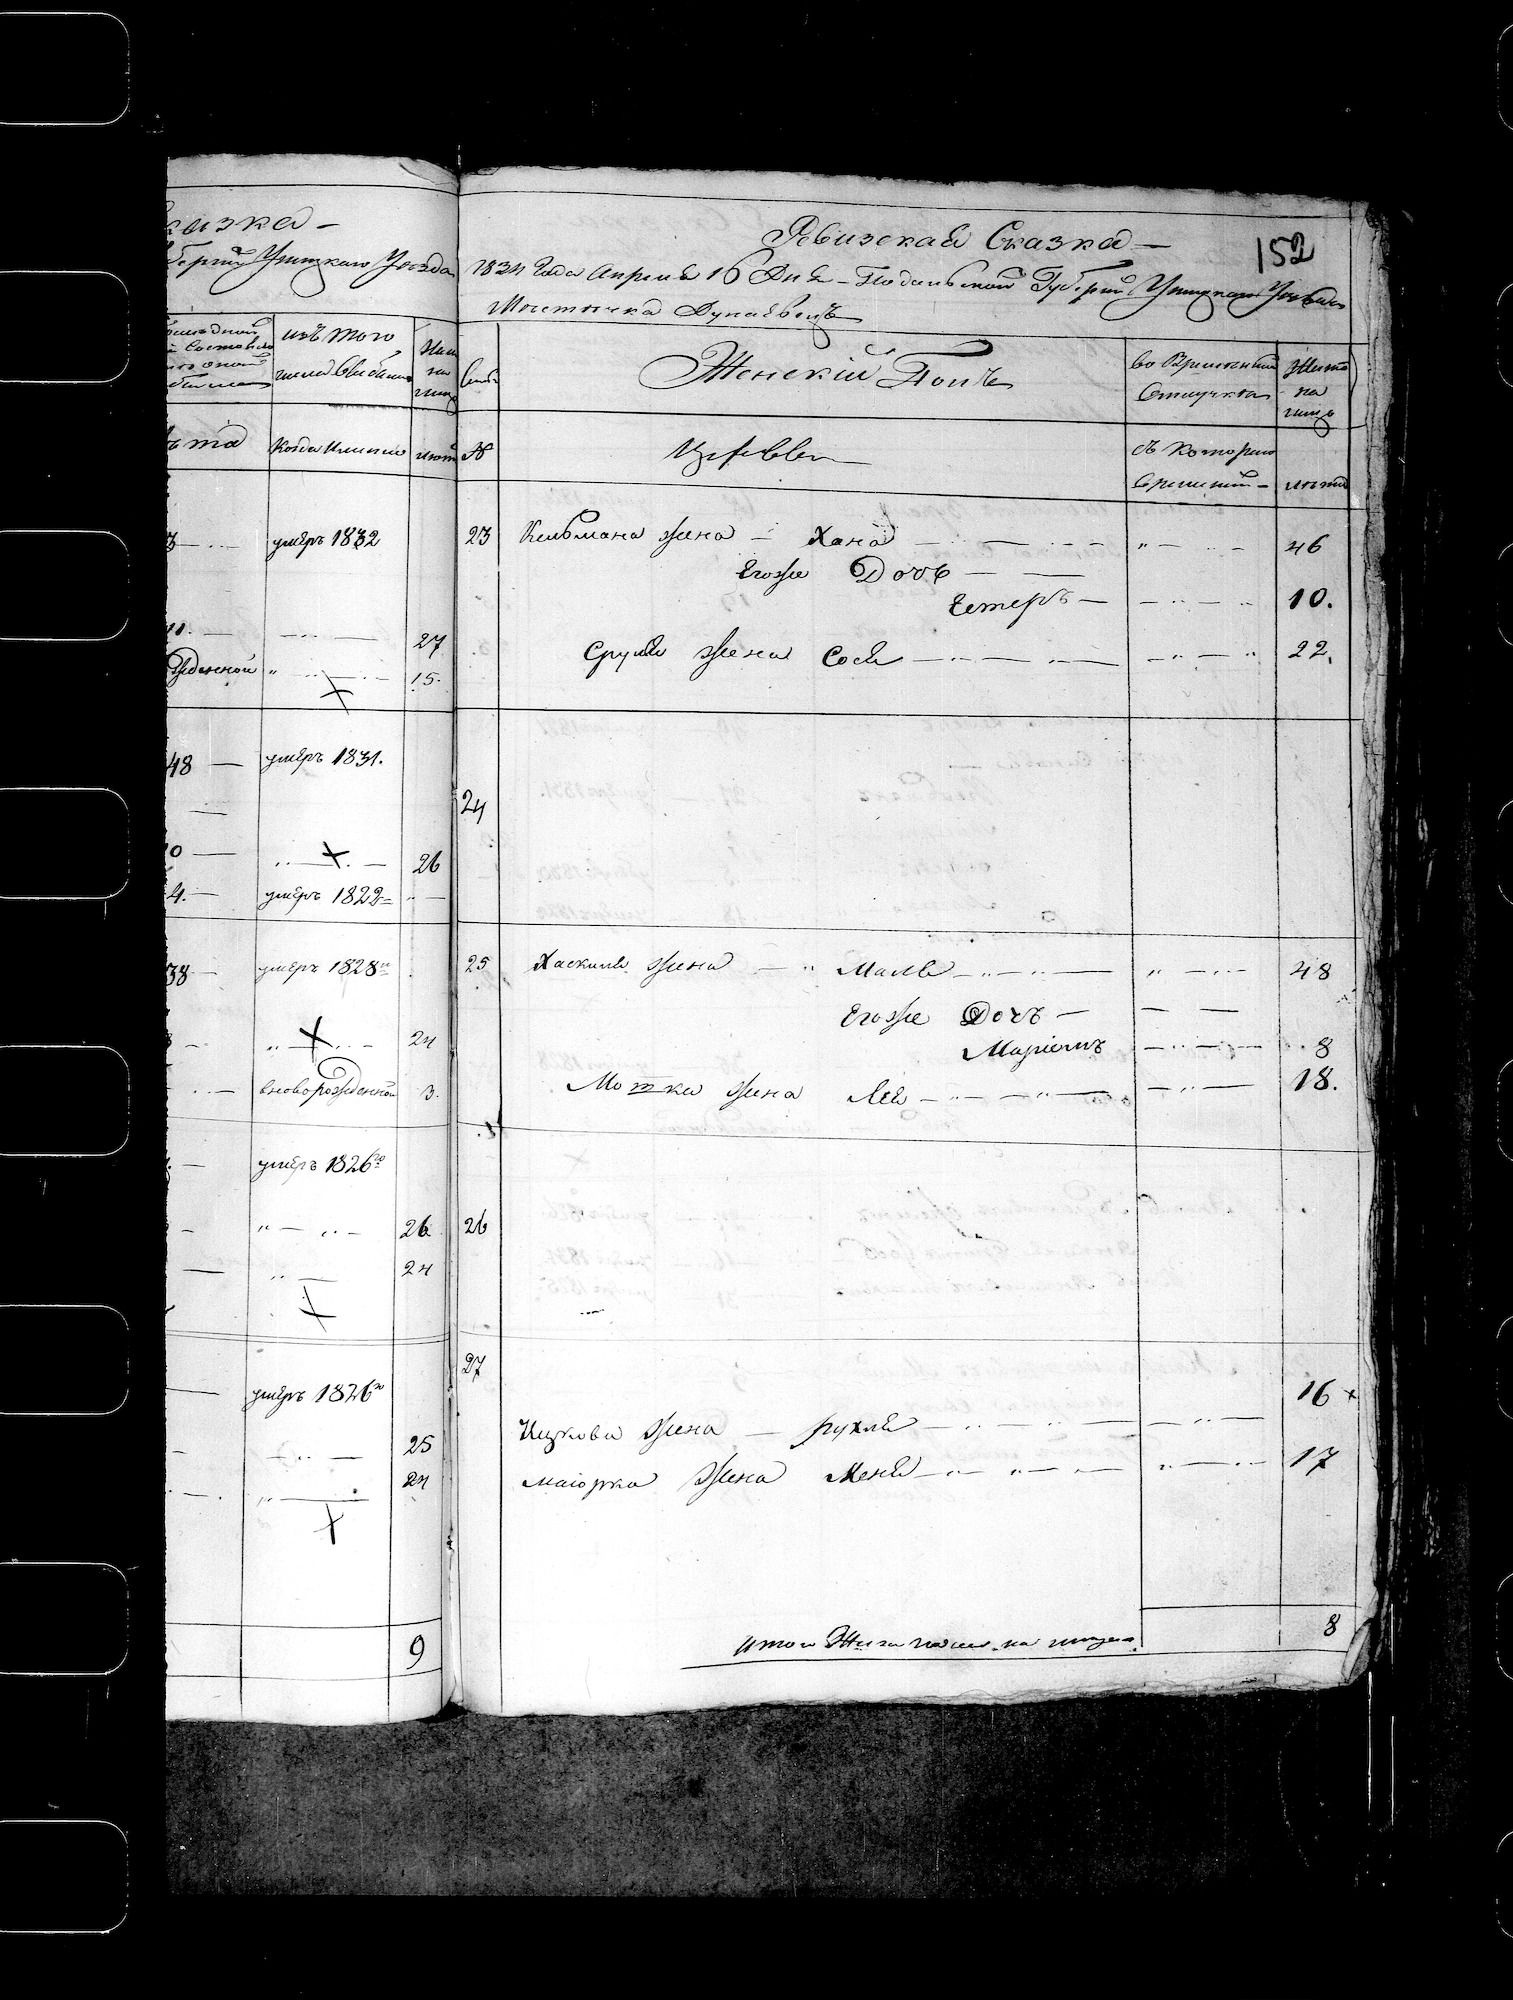 казка
Губерніи Ушицкаго Уезда
изъ того
числа выбыло
Когда именно
лета
умеръ 1832
27
15.
48 умеръ 1831.
26
4. умеръ 1822
38 умеръ 1828
24
вноворожденной 3.
умеръ 1826го
26
24
умеръ 1826го
25
24
9
152
Ревизская Сказка
1834 Года Апреля 16 Дня Подольской Губерніи Ушицкаго Уезда
Местечка Дунаевецъ
Женскій Полъ
во Временной
Отлучке
Жито
на
лицо
№
съ котораго
времени
лета
23 Кельмана жена Хана 46
Егоже Дочь
Естеръ 10.
Сруля жена Сося 22.
24
25 Хаскиля жена Маля 48
Егоже Дочъ
Маріемъ 8
Мошка жена Лея 18.
26
27
16
Ицкова жена рухля
Маіорка жена Меня 17
Итого Женска пола на лицо 8